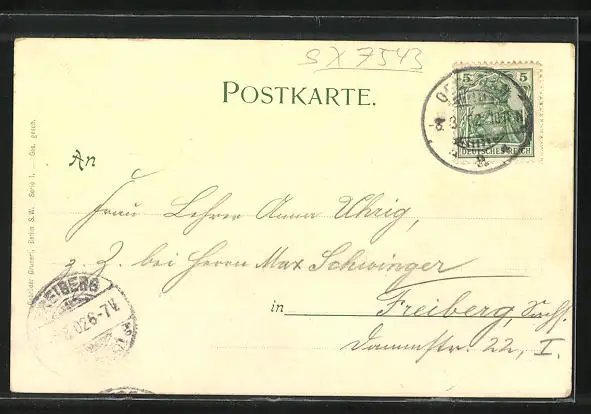 S X 7543
POSTKARTE.
5 5
DEUTSCHES REICH
An
Frau Lehrer Anna Uhrig,
z. Z. bei Herrn Max Schwinger
in Freiberg, Sachs.
Dammstr. 22, I.
FREIBERG
02 6-7
Berlin S.W. Serie I. — Ges. gesch.